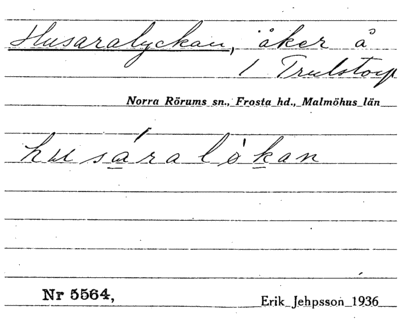 Husaralyckan, åker å
1 Trulstorp
Norra Rörums sn., Frosta hd., Malmöhus län
husáralökan
Nr 5564,
Erik Jehpsson 1936